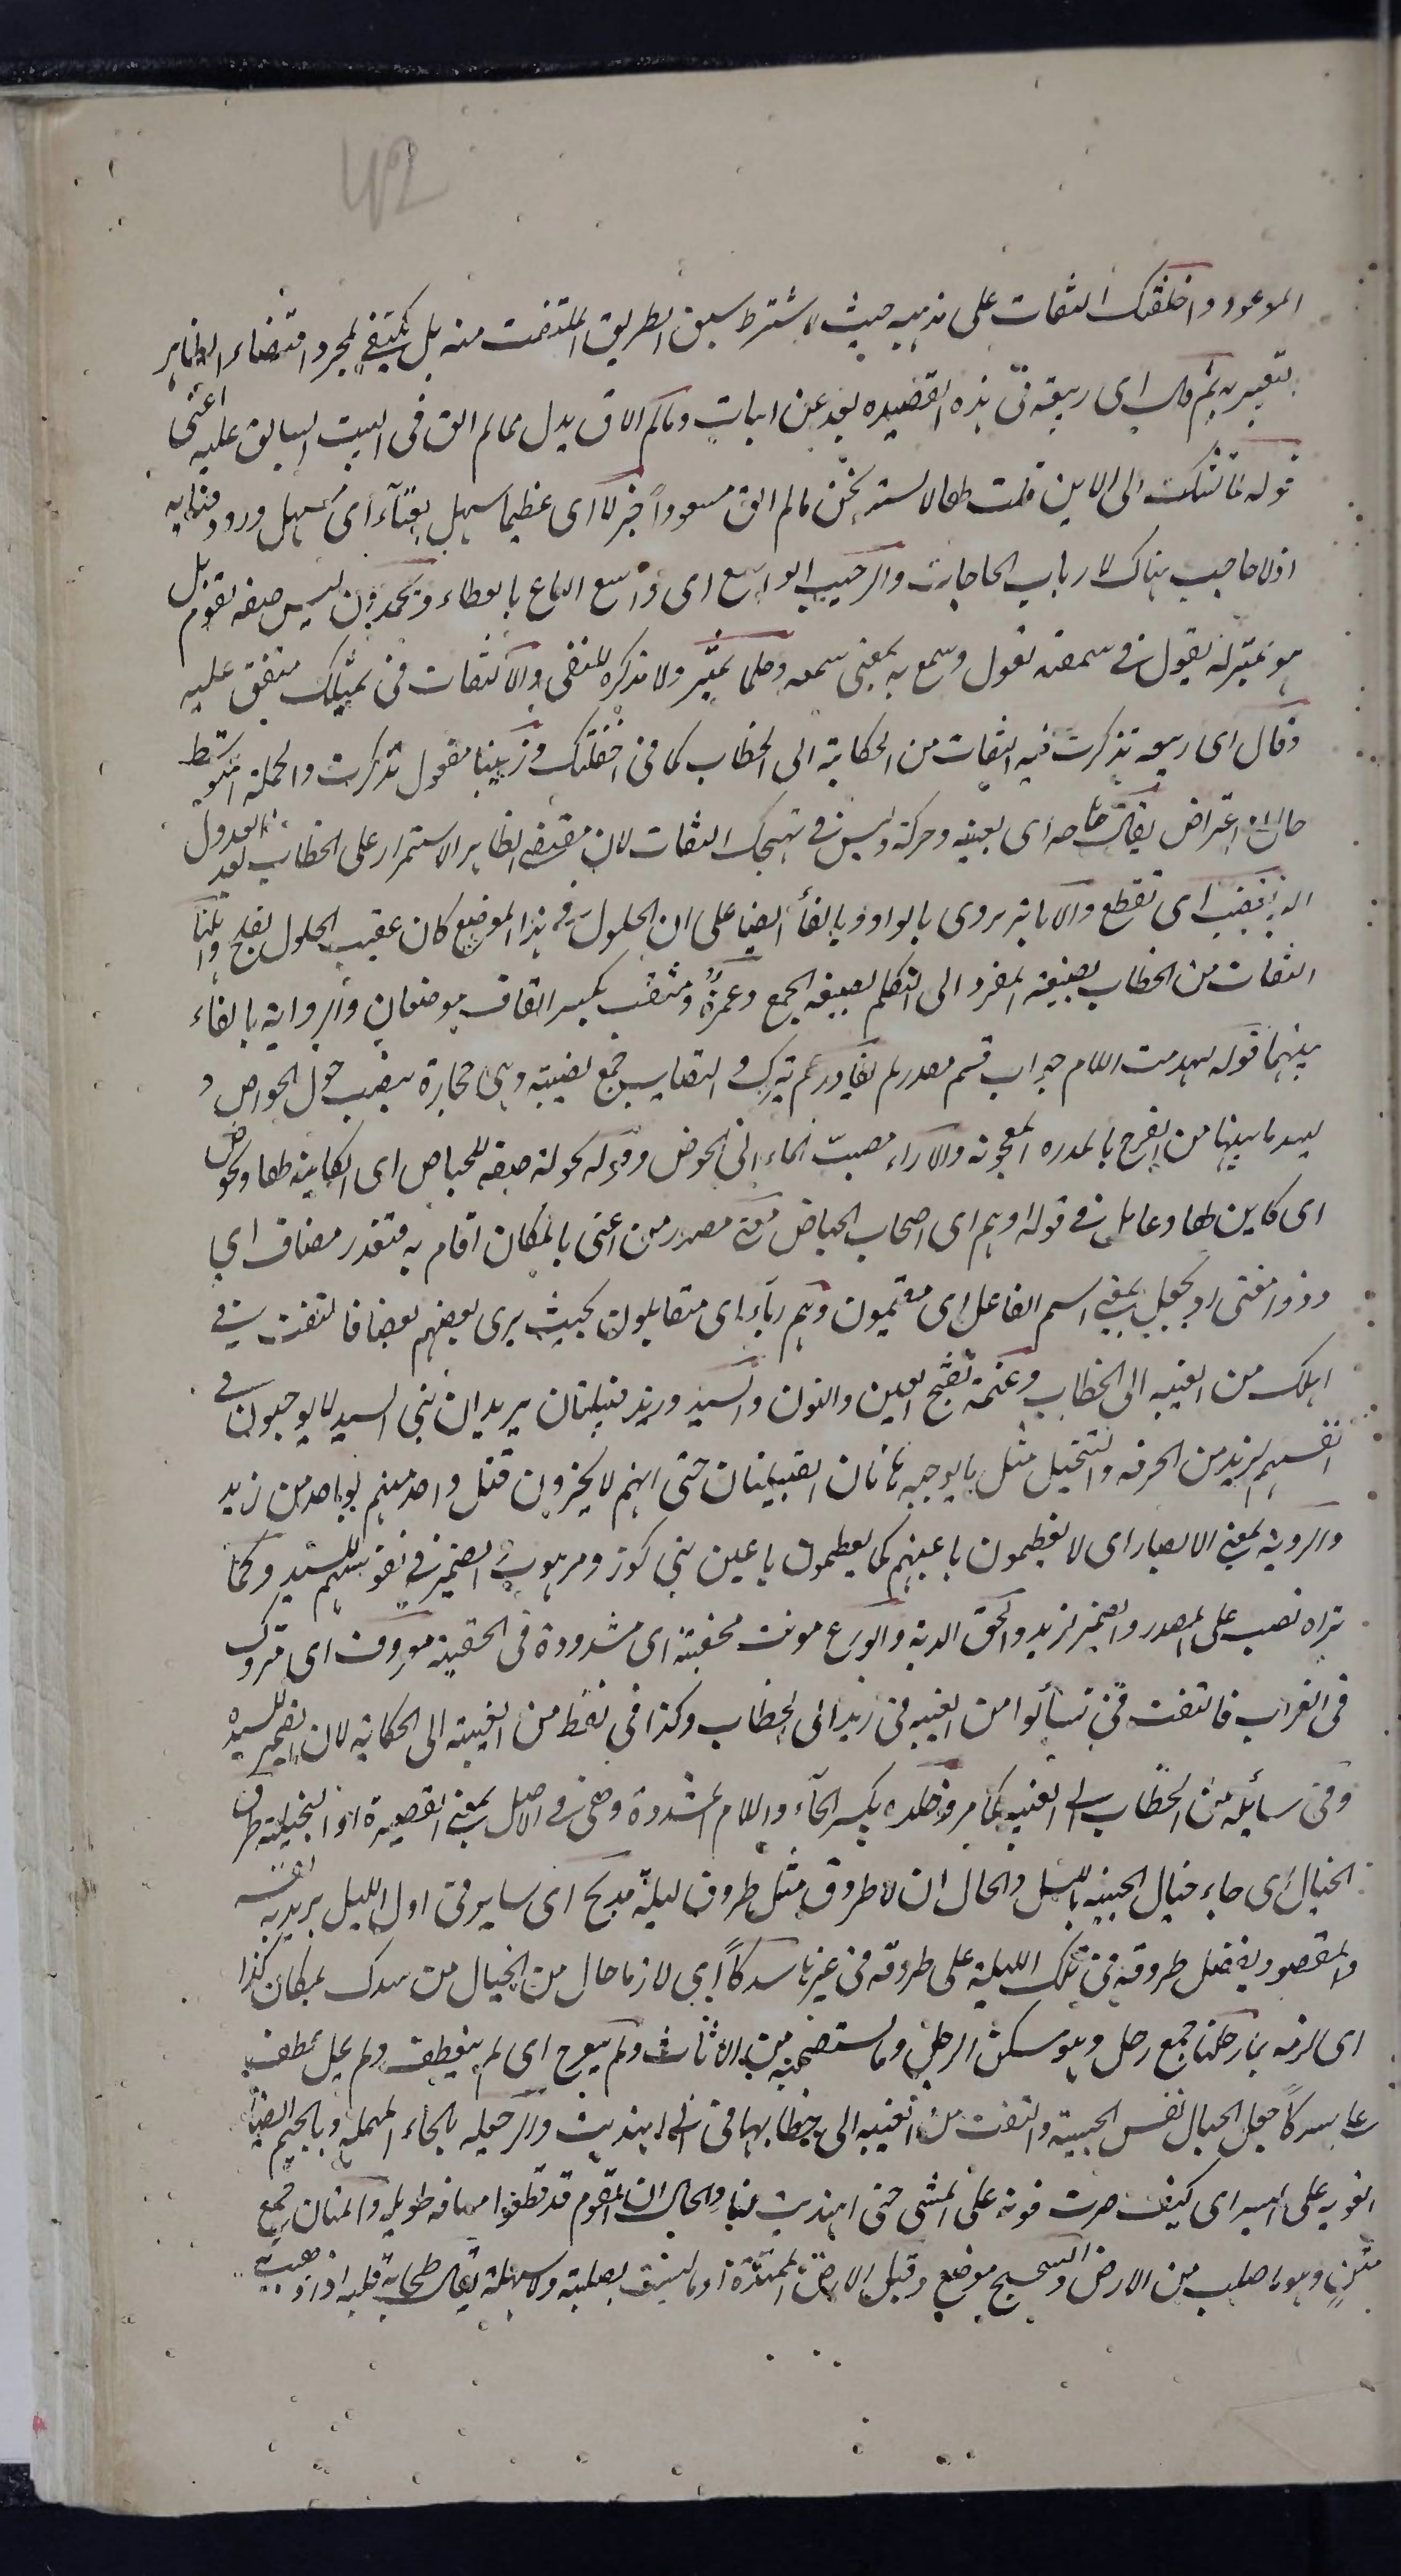 42
الموعود واخلفتك التفات على مذهبه حيث لا يشترط سبق الطريق الملتفت منه بل يكتفى لمجرد اقتضاء الظاهر
بتعبير به ثم قال اى ربيعة فى هذه القصيده بعد عن ابيات وما لم الاق بدل مما لم الق فى البيت السابق عليه اعنى
قوله لما تشكت الى الاين قلت لها لا تستريحن ما لم الق مسعوداً جزلا اى عظيما سهل بفنآء اى سهل ورود فنائه
اذ لا حاجب هناك لارباب الحاجات والرحيب الواسع اى واسع الباع بالعطاء ويحمدون ليس صفه لقوم بل
هو بمنزلة يقول فى سمعته يقول وسمع به بمعنى سمعه وحلما تميز ولا تذكره للنفى والالتفات فى بمثلك متفق عليه
وقال اى ربيعه تذكرت فيه التفات من الحكاية الى الخطاب كما فى اخلفتك وزينبا مفعول تذكرت والجملة المتوسطة
حال او اعتراض يقال هاجه اى بعثه وحركه وليس فى تهيجك التفات لان مقتضى الظاهر الاستمرار على الخطاب بعد العدول
اليه تقضب اى تقطع والاباتر يروى بالواو وبالفآء ايضا على ان الحلول فى هذا الموضع كان عقيب الحلول بفلج واهلنا
التفات من الخطاب بصيغة المفرد الى التكلم بصيغة الجمع وغمرة ومثقب بكسر القاف موضعان والرواية بالفاء
بينهما قوله لهدمت اللام جواب قسم مصدر لم يغادر لم يترك والنصايب جمع نصيبة وهى حجارة ينصب حول الحوض و
يسد ما بينها من الفرج بالمدره المعجونة والازاء مصب الماء الى الحوض وقوله كحوله صفه للحياض اى الكاينه لها وكحوض
اى كاين لها وعامل فى قوله اوهم اى اصحاب الحياض مغنى مصدر من اغنى بالمكان اقام به فتقدر مضاف اى
وذووا مغنى او يجعل بمعنى اسم الفاعل اى مقيمون وهم رئآء اى متقابلون بحيث يرى بعضهم بعضا فالتفت فى
اهلك من الغيبه الى الخطاب وعنمة بفتح العين والنون والسيد وزيد قبيلتان يريد ان بنى السيد لا يوجبون فى
انفسهم لزيد من الحرمه والتبجيل مثل ما يوجبه هاتان القبيلتان حتى انهم لا يجزون قتل واحد منهم بواحد من زيد
والروية بمعنى الابصار اى لا يعظمون باعينهم كما يعظمون باعين بنى كوز ومرهوب الضمير فى نفوسهم للسيد وكما
تراه نصب على المصدر والضمير لزيد والحق الدية والورع مونث محقبة اى مشدودة فى الحقيبة مقروف اى متروك
فى القراب فالتفت فى تسألوا من الغيبه فى زيد الى الخطاب وكذا فى نعط من الغيبة الى الحكاية لان الضمير للسيد
وفى سائله من الخطاب الى الغيبه كما مر وخلده بكسر الخآء واللام المشددة وهى فى الاصل بمعنى القصيرة او البخيلة طرق
الخيال اى جاء خيال الحبيبه بالليل والحال ان لا طروق مثل طروق ليلة مدلج اى ساير فى اول الليل يريد به نفسه
والمقصود يفضل طروقه فى تلك الليلة على طروقه فى غيرها سدكاً اى لازما حال من الخيال من سدك بمكان كذا
اى لزمه بارحلنا جمع رحل وهو سكن الرجل وما يستصحبه من الاثاث ولم يتعرج اى لم ينعطف ولم يمل عطف
على سدكاً جعل الخيال نفس الحبيبة والتفت من الغيبه الى خطابها فى انى اهتديت والرحيله بالحاء المهمله وبالجيم ايضا
القويه على السير اى كيف صرت قوية على المشى حتى اهتديت لنا والحال ان القوم قد قطعوا مسافه طويله والمتان جمع
متن وهو ما صلب من الارض والسجسج موضع وقيل الارض الممتدة او ما ليست بصلبة ولا سهلة يقال طحا به قلبه اذا ذهب به